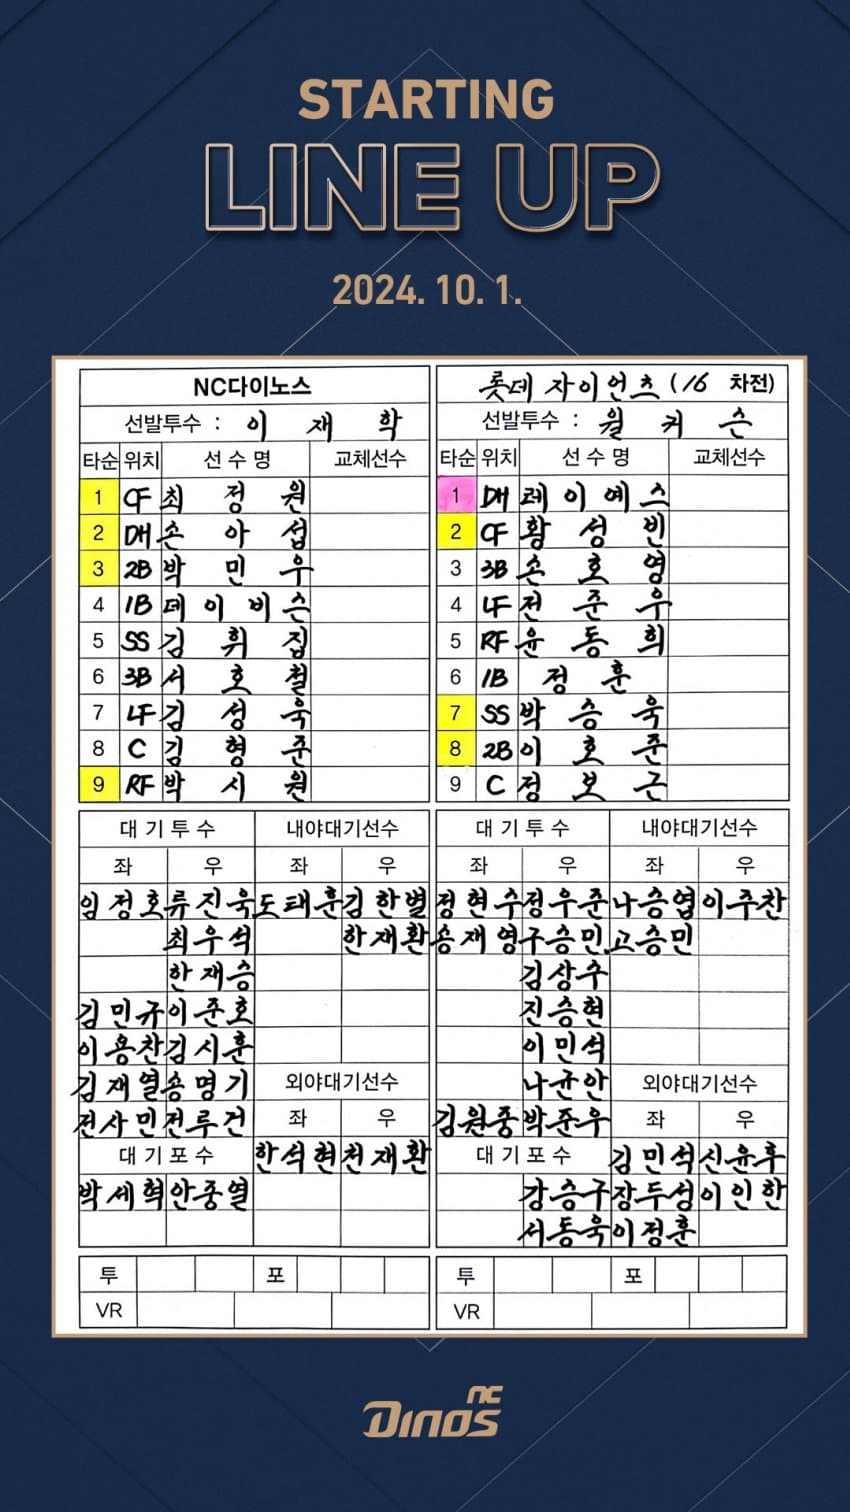 STARTING
LINE UP
2024. 10. 1.
NC다이노스
선발투수 : 이 재 학
타순 위치 선 수 명 교체선수
1 CF 최 정 원
2 DH 손 아 섭
3 2B 박 민 우
4 1B 데 이 비 슨
5 SS 김 휘 집
6 3B 서 호 철
7 LF 김 성 욱
8 C 김 형 준
9 RF 박 시 원
대 기 투 수 내야대기선수
좌 우 좌 우
임정호 류진욱 도태훈 김한별
최우석 한재환
한재승
김민규 이준호
이용찬 김시훈
김재열 송명기 외야대기선수
전사민 전루건 좌 우
대 기 포 수 한석현 천재환
박세혁 안중열
투 포
VR
롯데 자이언츠 (16 차전)
선발투수 : 윌 커 슨
타순 위치 선 수 명 교체선수
1 DH 레 이 예 스
2 CF 황 성 빈
3 3B 손 호 영
4 LF 전 준 우
5 RF 윤 동 희
6 1B 정 훈
7 SS 박 승 욱
8 2B 이 호 준
9 C 정 보 근
대 기 투 수 내야대기선수
좌 우 좌 우
정현수 정우준 나승엽 이주찬
송재영 구승민 고승민
김상수
진승현
이민석
나균안 외야대기선수
김원중 박준우 좌 우
대 기 포 수 김민석 신윤후
강승구 장두성 이인한
서동욱 이정훈
투 포
VR
NC
Dinos